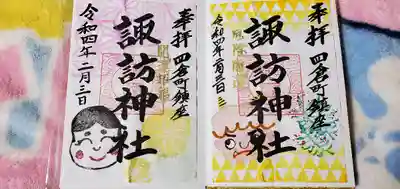 奉拝 四倉町鎮座
諏訪神社
令和四年二月三日
奉拝 四倉町鎮座
諏訪神社
令和四年二月三日